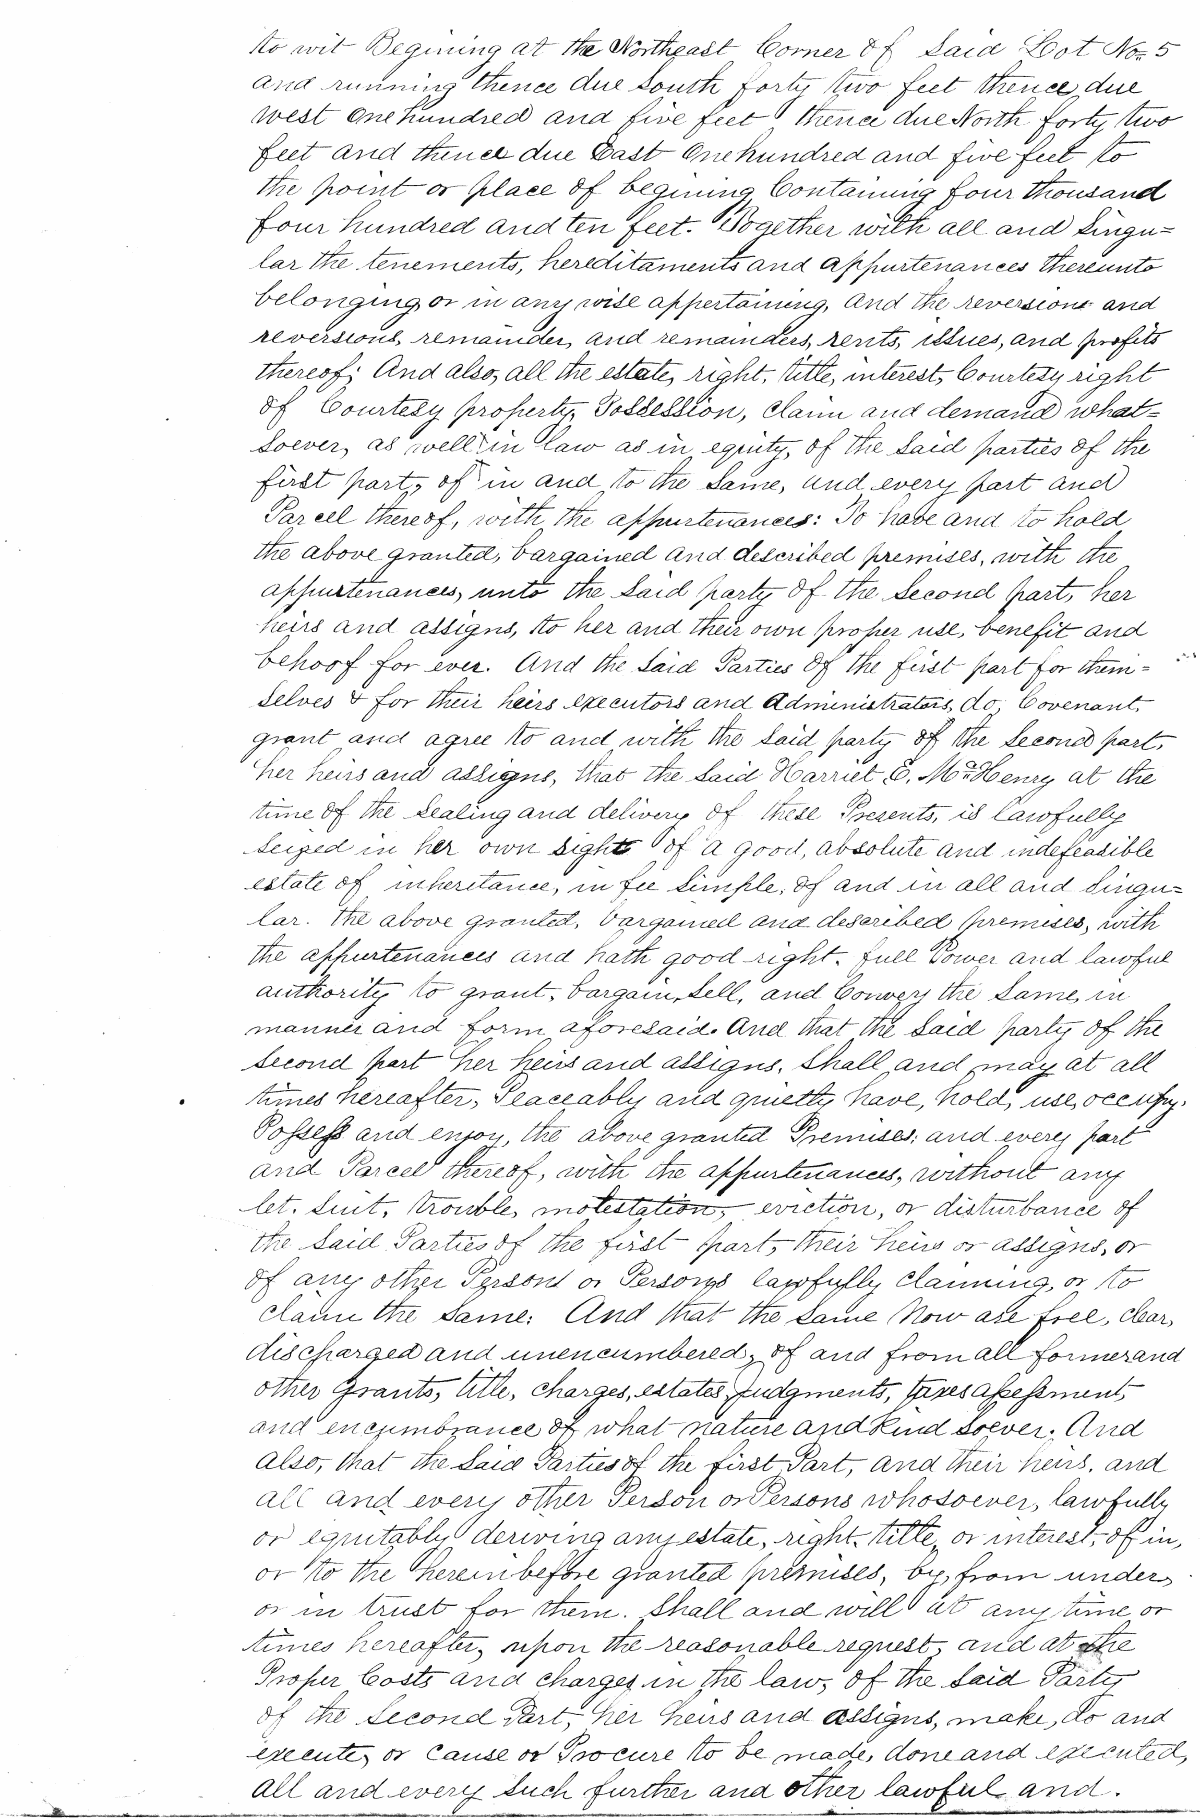 to wit Begining at the Northeast Corner of Said Lot No. 5
and running thence due South forty two feet thence due
west one hundred and five feet thence due North forty two
feet and thence due East one hundred and five feet to
the point or place of begining Containing four thousand
four hundred and ten feet. Together with all and Singu=
lar the tenements, hereditaments and appurtenances thereunto
belonging or in any wise appertaining, and the reversion and
reversions, remainder, and remainders, rents, issues, and profits
thereof; And also, all the estate, right, title, interest, Courtesy right
of Courtesy property, Possession, claim and demand what=
soever, as well in law as in equity, of the Said parties of the
first part, of in and to the Same, and every part and
Parcel thereof, with the appurtenances: To have and to hold
the above granted, bargained and described premises, with the
appurtenances, unto the Said party of the Second part, her
heirs and assigns, to her and their own proper use, benefit and
behoof for ever. And the Said Parties of the first part for them=
selves & for their heirs executors and Administrators, do, Covenant,
grant and agree to and with the Said party of the Second part,
her heirs and assigns, that the Said Harriet E. McHenry at the
time of the Sealing and delivery of these Presents, is lawfully
Seized in her own right of a good, absolute and indefeasible
estate of inheritance, in fee Simple, of and in all and Singu=
lar. the above granted, bargained and described premises, with
the appurtenances and hath good right, full Power and lawful
authority to grant, bargain, Sell, and Convey the Same, in
manner and form aforesaid. And that the Said party of the
Second part her heirs and assigns, Shall and may at all
times hereafter, Peaceably and quietly have, hold, use, occupy,
Possess and enjoy, the above granted Premises; and every part
and Parcel thereof, with the appurtenances, without any
let, Suit, trouble, molestation, eviction, or disturbance of
the Said Parties of the first part, their heirs or assigns, or
of any other Person or Persons lawfully claiming, or to
claim the Same: And that the Same Now are free, clear,
discharged and unencumbered, of and from all former and
other grants, title, charges, estates, Judgments, taxes assessment,
and encumbrance of what nature and Kind soever. And
also, that the Said Parties of the first Part, and their heirs, and
all and every other Person or Persons whosoever, lawfully
or equitably deriving any estate, right, title, or interest, of in,
or to the herein before granted premises, by, from under,
or in trust for them. Shall and will at any time or
times hereafter, upon the reasonable request, and at the
Proper Costs and charges in the law, of the Said Party
of the Second Part, her heirs and assigns, make, do and
execute, or Cause or Procure to be made, done and executed,
all and every Such further and other lawful and.